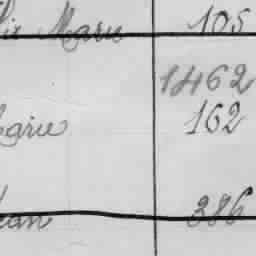 Marie 105
1462
Marie 162
Jean 386